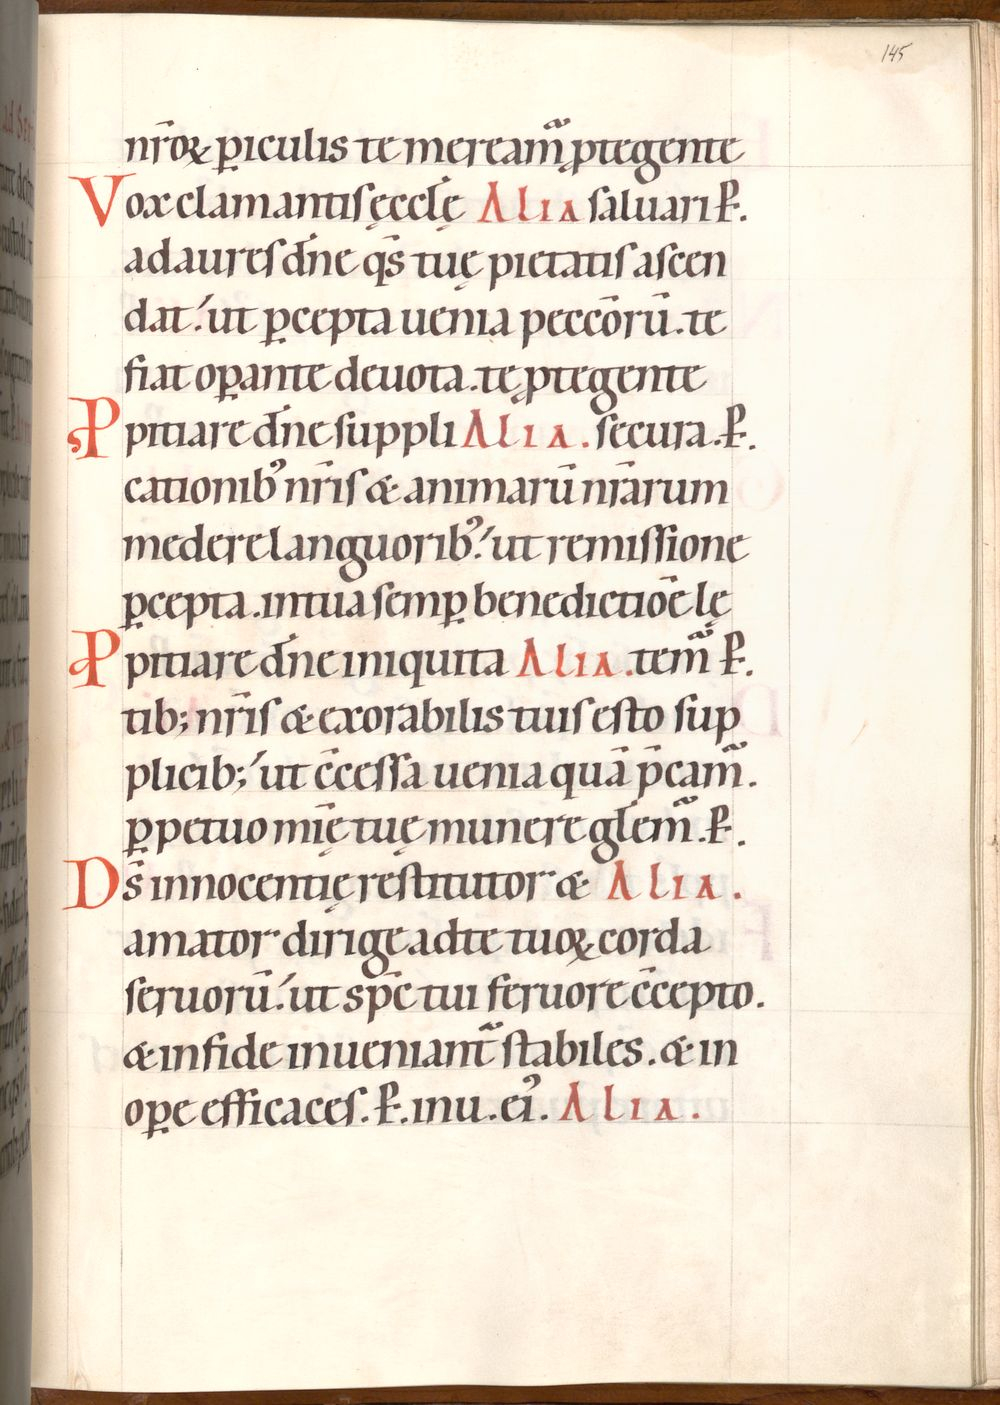 145
nr̄oꝝ ꝑiculis te meream̃ ꝓtegente
Vox clamantiſ ęccl̄ę Alia ſaluari ꝑ.
ad aureſ dn̄e qs̄ tuę pietatiſ aſcen
dat.́ ut ꝑcepta uenia peccōrū. te
fiat oꝑante deuota. te ꝓtegente
Ppitiare dn̄e ſuppli Alia. ſecura. ꝑ.
cationibꝰ nr̄iſ & animarū nr̄arum
medere languoribꝰ.́ ut remiſſione
ꝑcepta. in tua ſemꝑ benedictiōe lę
Ppitiare dn̄e iniquita Alia. tem̃ ꝑ.
tib; nr̄iſ & exorabilis tuiſ eſto ſup
plicib;́ ut c̄ceſſa uenia quā p̄cam̃.
ꝑpetuo mīę tuę munere gl̄em̃. ꝑ.
Ds̄ innocentię reſtitutor & Alia.
amator dirige ad te tuoꝝ corda
ſeruorū.́ ut sp̄c tui feruore c̄cepto.
& in fide inueniant̃ ſtabiles. & in
oꝑe efficaceſ. ꝑ. in u. eiꝰ. Alia.